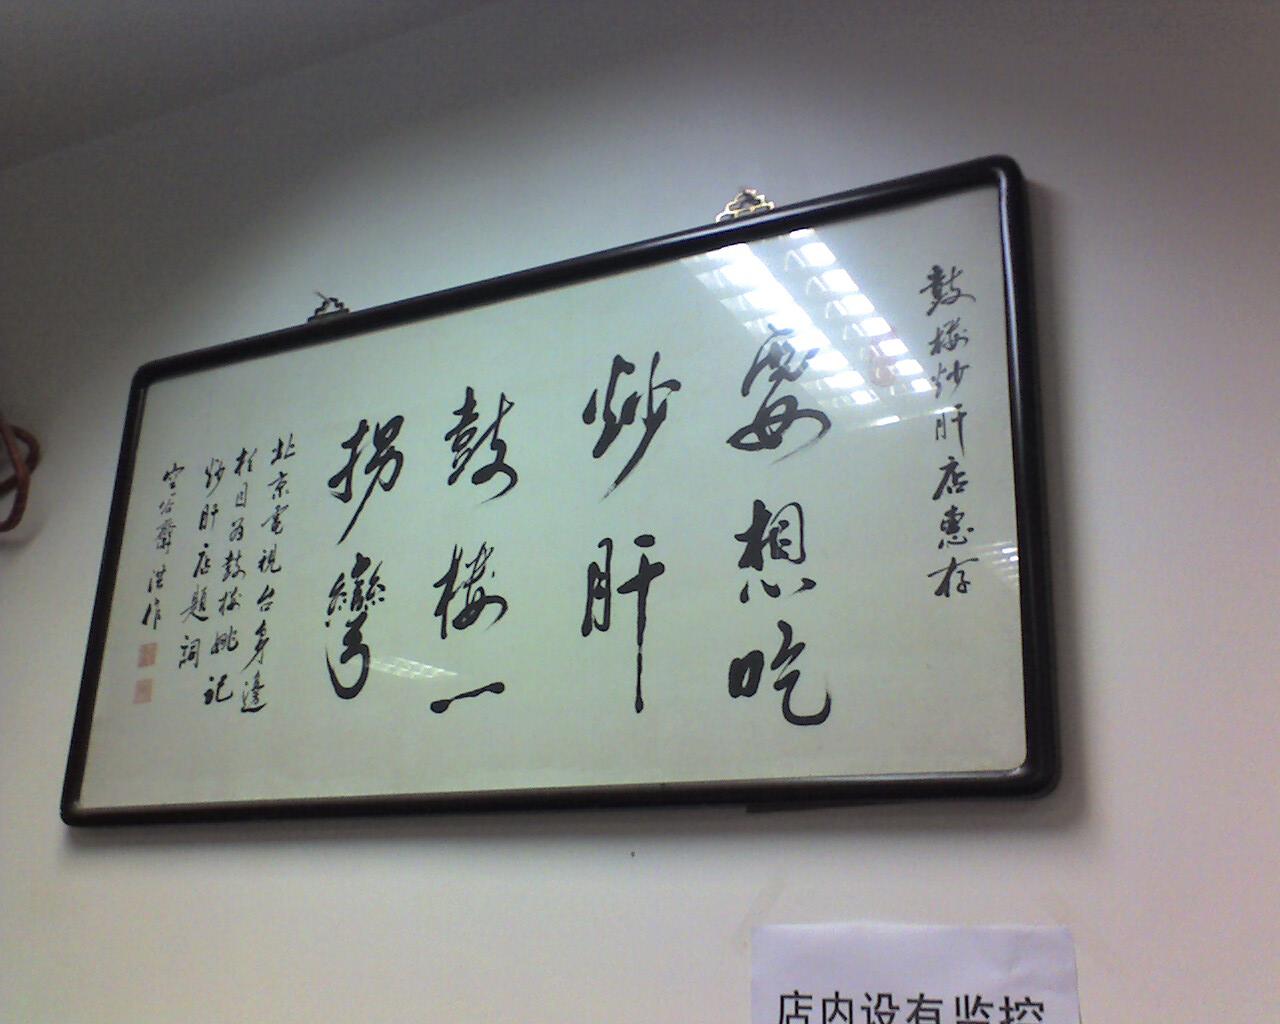 鼓楼炒肝店惠存
要想吃
炒肝
鼓楼一
拐彎
北京電視台身邊
栏目为鼓楼姚记
炒肝店題詞
洪作
店内设有监控